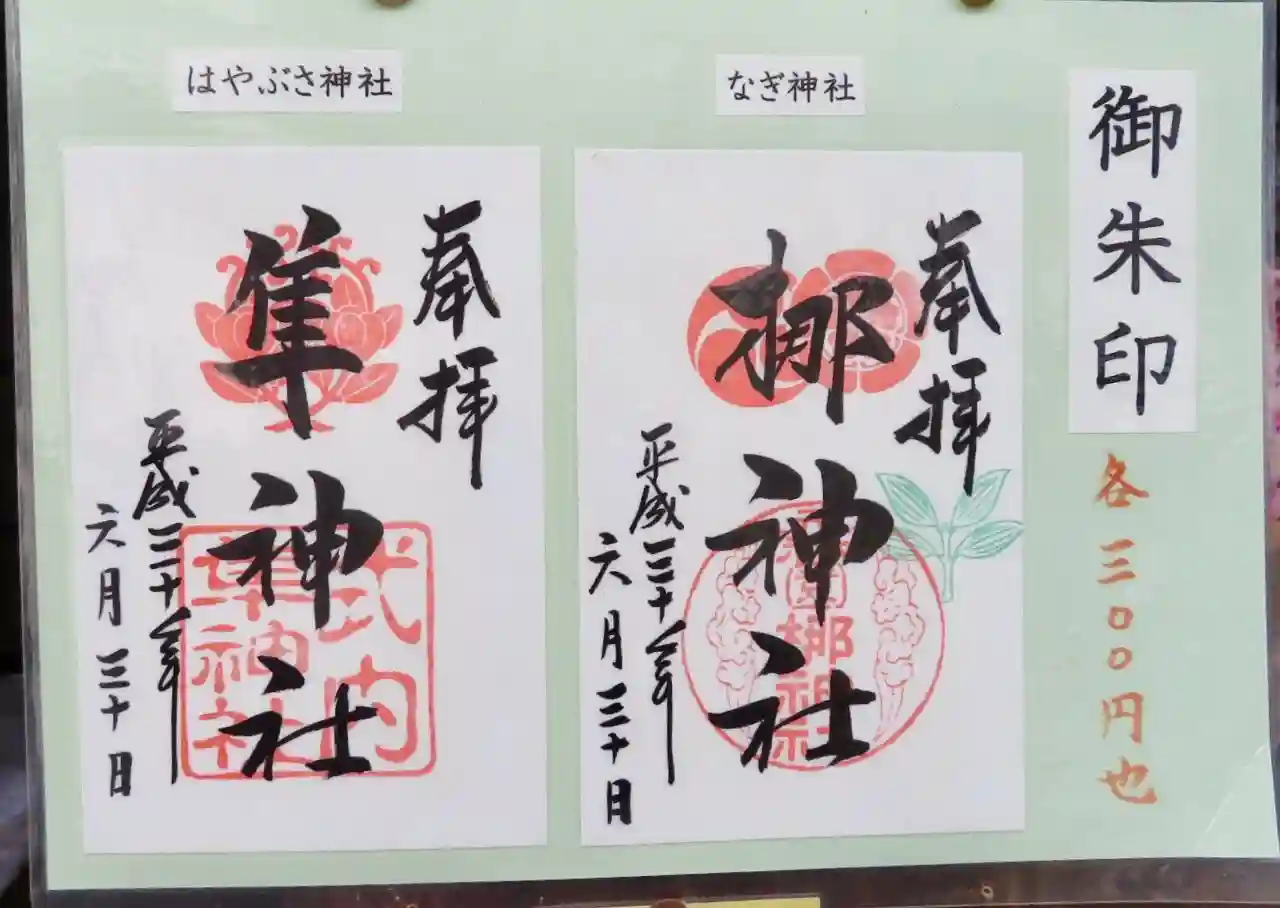 御朱印
各三〇〇円也
なぎ神社
奉拝
梛神社
平成三十年
六月三十日
梛
はやぶさ神社
奉拝
隼神社
平成三十年
六月三十日
式内
隼神社